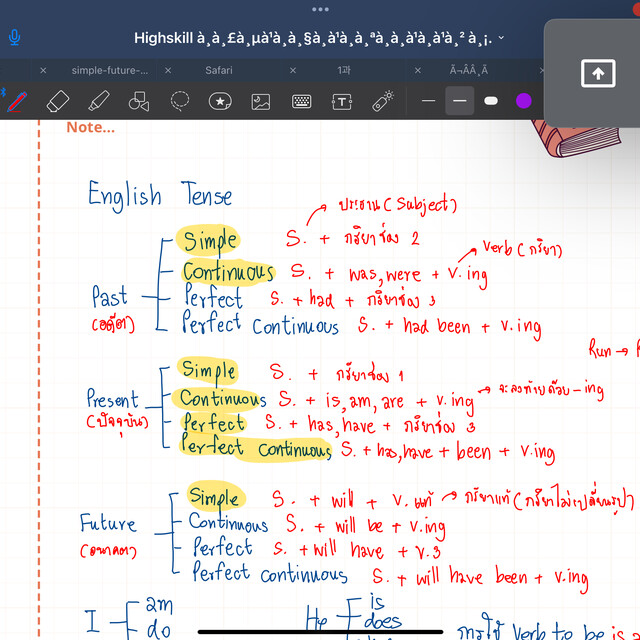 Highskill à¸à¸£à¸µà¹à¸à¸§à¸à¹à¸à¸ªà¸à¸à¹à¸à¹à¸²à¸¡.
simple-future-...
Safari
1과
Ã¬ÂÂ¸Ã
Note...
English Tense
ประธาน (Subject)
Simple S. + กริยาช่อง 2
Verb (กริยา)
Continuous S. + was, were + V.ing
Past Perfect S. + had + กริยาช่อง 3
(อดีต) Perfect Continuous S. + had been + V.ing
Run →
Simple S. + กริยาช่อง 1
Present Continuous S. + is, am, are + V.ing → จะลงท้ายด้วย -ing
(ปัจจุบัน) Perfect S. + has, have + กริยาช่อง 3
Perfect Continuous S. + has, have + been + V.ing
Simple S. + will + V. แท้ → กริยาแท้ (กริยาไม่เปลี่ยนรูป)
Future Continuous S. + will be + V.ing
(อนาคต) Perfect S. + will have + V.3
Perfect Continuous S. + will have been + V.ing
I am do
He is does
การใช้ Verb to be is